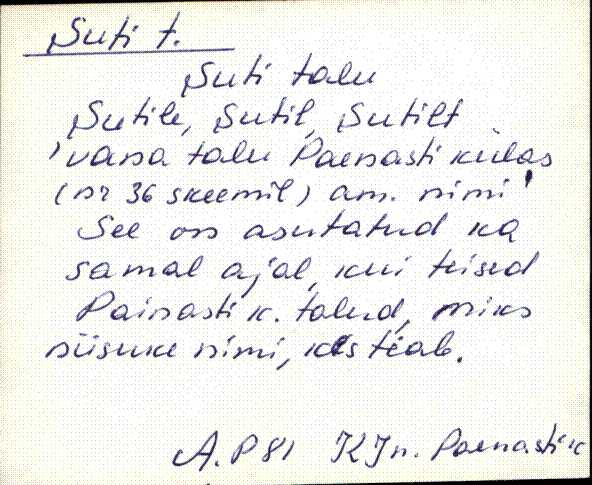 Suti t.
Suti talu
Sutile, Sutil, Sutilt
'vana talu Paenasti külas
(nr 36 skeemil) am. nimi'
See on asutatud ka
samal ajal, kui teised
Painasti k. talud, miks
niisuke nimi, kes teab.
A.P 81 KJn. Paenasti k